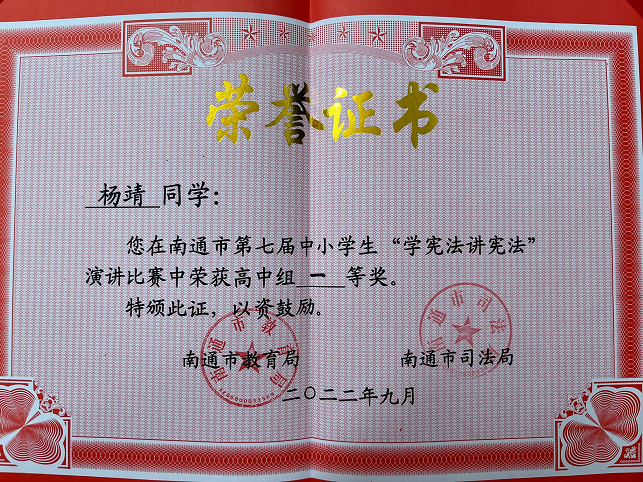 荣誉证书
杨靖 同学：
您在南通市第七届中小学生“学宪法讲宪法”
演讲比赛中荣获高中组 一 等奖。
特颁此证，以资鼓励。
南通市教育局 南通市司法局
二〇二二年九月
南通市教育局
南通市司法局